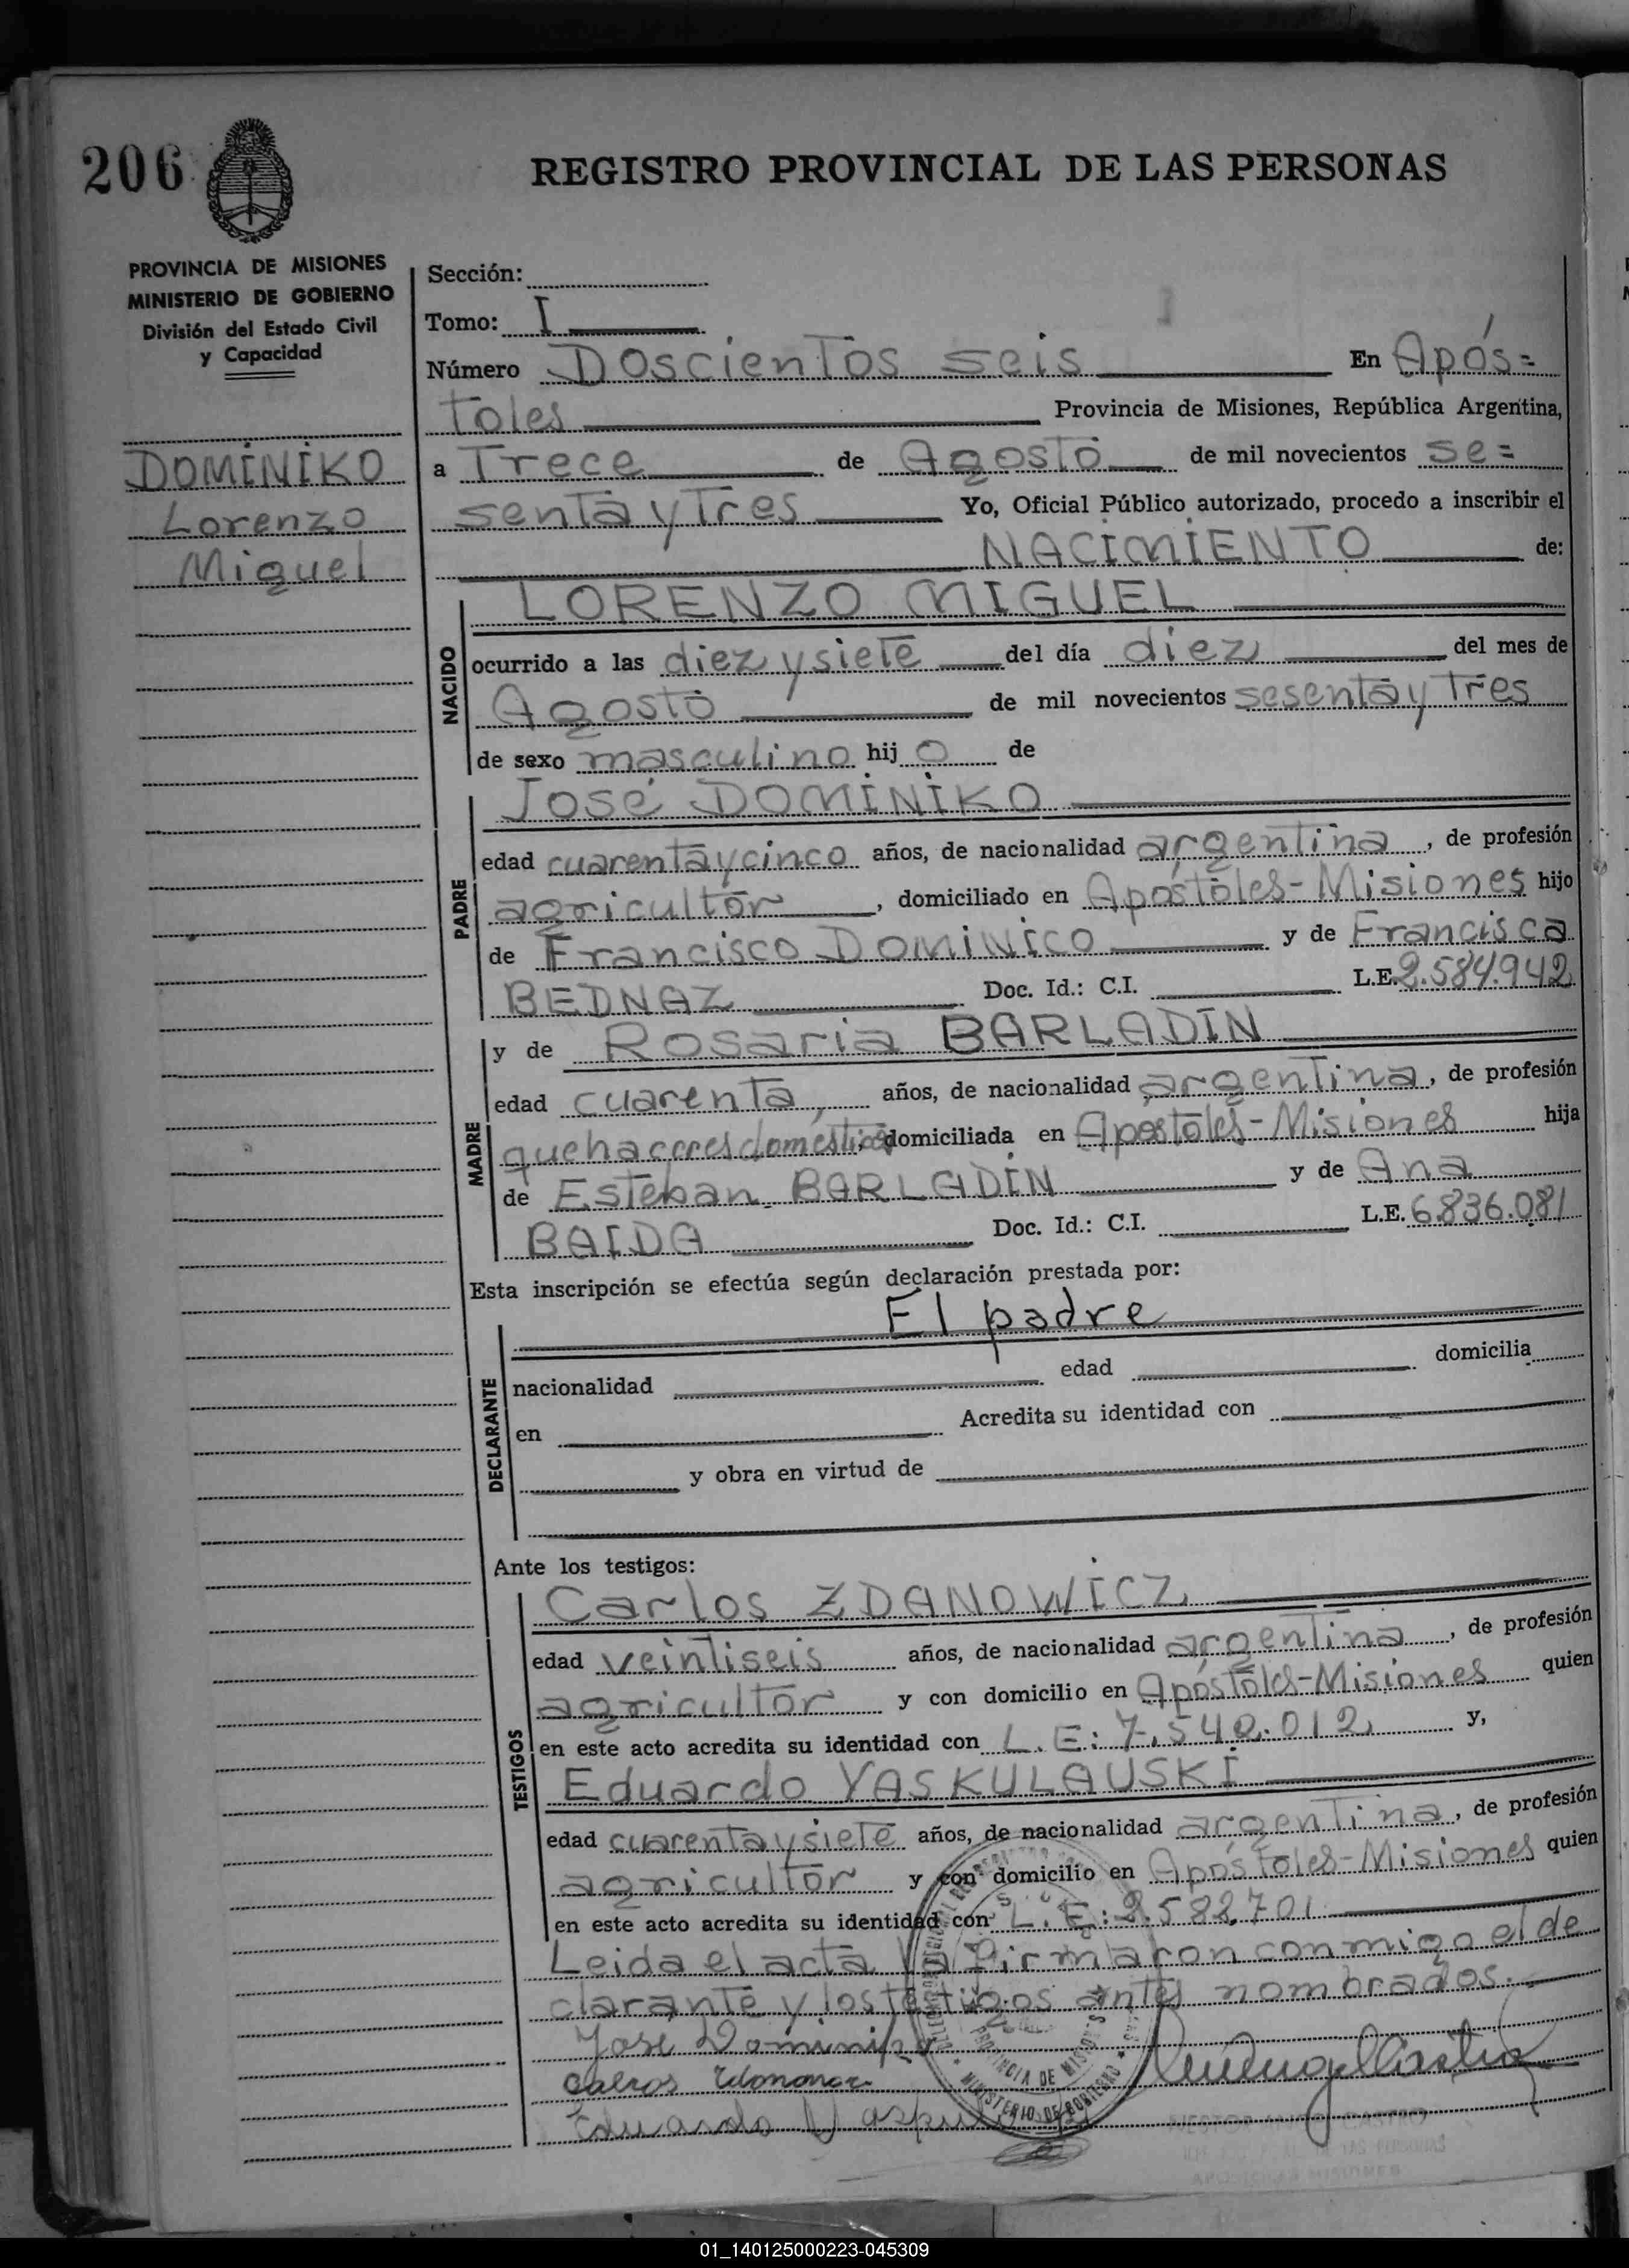 206
REGISTRO PROVINCIAL DE LAS PERSONAS
PROVINCIA DE MISIONES
MINISTERIO DE GOBIERNO
División del Estado Civil
y Capacidad
DOMINIKO
Lorenzo
Miguel
Sección:
Tomo: I
Número Doscientos seis En Após=
toles Provincia de Misiones, República Argentina,
a Trece de Agosto de mil novecientos se=
senta y Tres Yo, Oficial Público autorizado, procedo a inscribir el
NACIMIENTO de:
NACIDO
LORENZO MIGUEL
ocurrido a las diez y siete del día diez del mes de
Agosto de mil novecientos sesenta y Tres
de sexo masculino hij o de
PADRE
José DOMINIKO
edad cuarenta y cinco años, de nacionalidad argentina, de profesión
agricultor, domiciliado en Apóstoles-Misiones hijo
de Francisco DOMINICO y de Francisca
BEDNAZ Doc. Id.: C.I. L.E. 2.584.942
MADRE
y de Rosaria BARLADIN
edad cuarenta, años, de nacionalidad argentina, de profesión
quehaceres domésticos domiciliada en Apóstoles-Misiones hija
de Esteban BARLADIN y de Ana
BAIDA Doc. Id.: C.I. L.E. 6.836.081
Esta inscripción se efectúa según declaración prestada por:
El padre
DECLARANTE
nacionalidad edad domicilia
en Acredita su identidad con
y obra en virtud de
Ante los testigos:
TESTIGOS
Carlos ZDANOWICZ
edad veintiseis años, de nacionalidad argentina, de profesión
agricultor y con domicilio en Apóstoles-Misiones quien
en este acto acredita su identidad con L.E: 7.540.012 y,
Eduardo YASKULAUSKI
edad cuarenta y siete años, de nacionalidad argentina, de profesión
agricultor y con domicilio en Apóstoles-Misiones quien
en este acto acredita su identidad con L.E: 2.582.701
Leida el acta la firmaron conmigo el de
clarante y los testigos antes nombrados.
José Dominiko
PROVINCIA DE MISIONES
MINISTERIO DE GOBIERNO
Eduardo
01_140125000223-045309